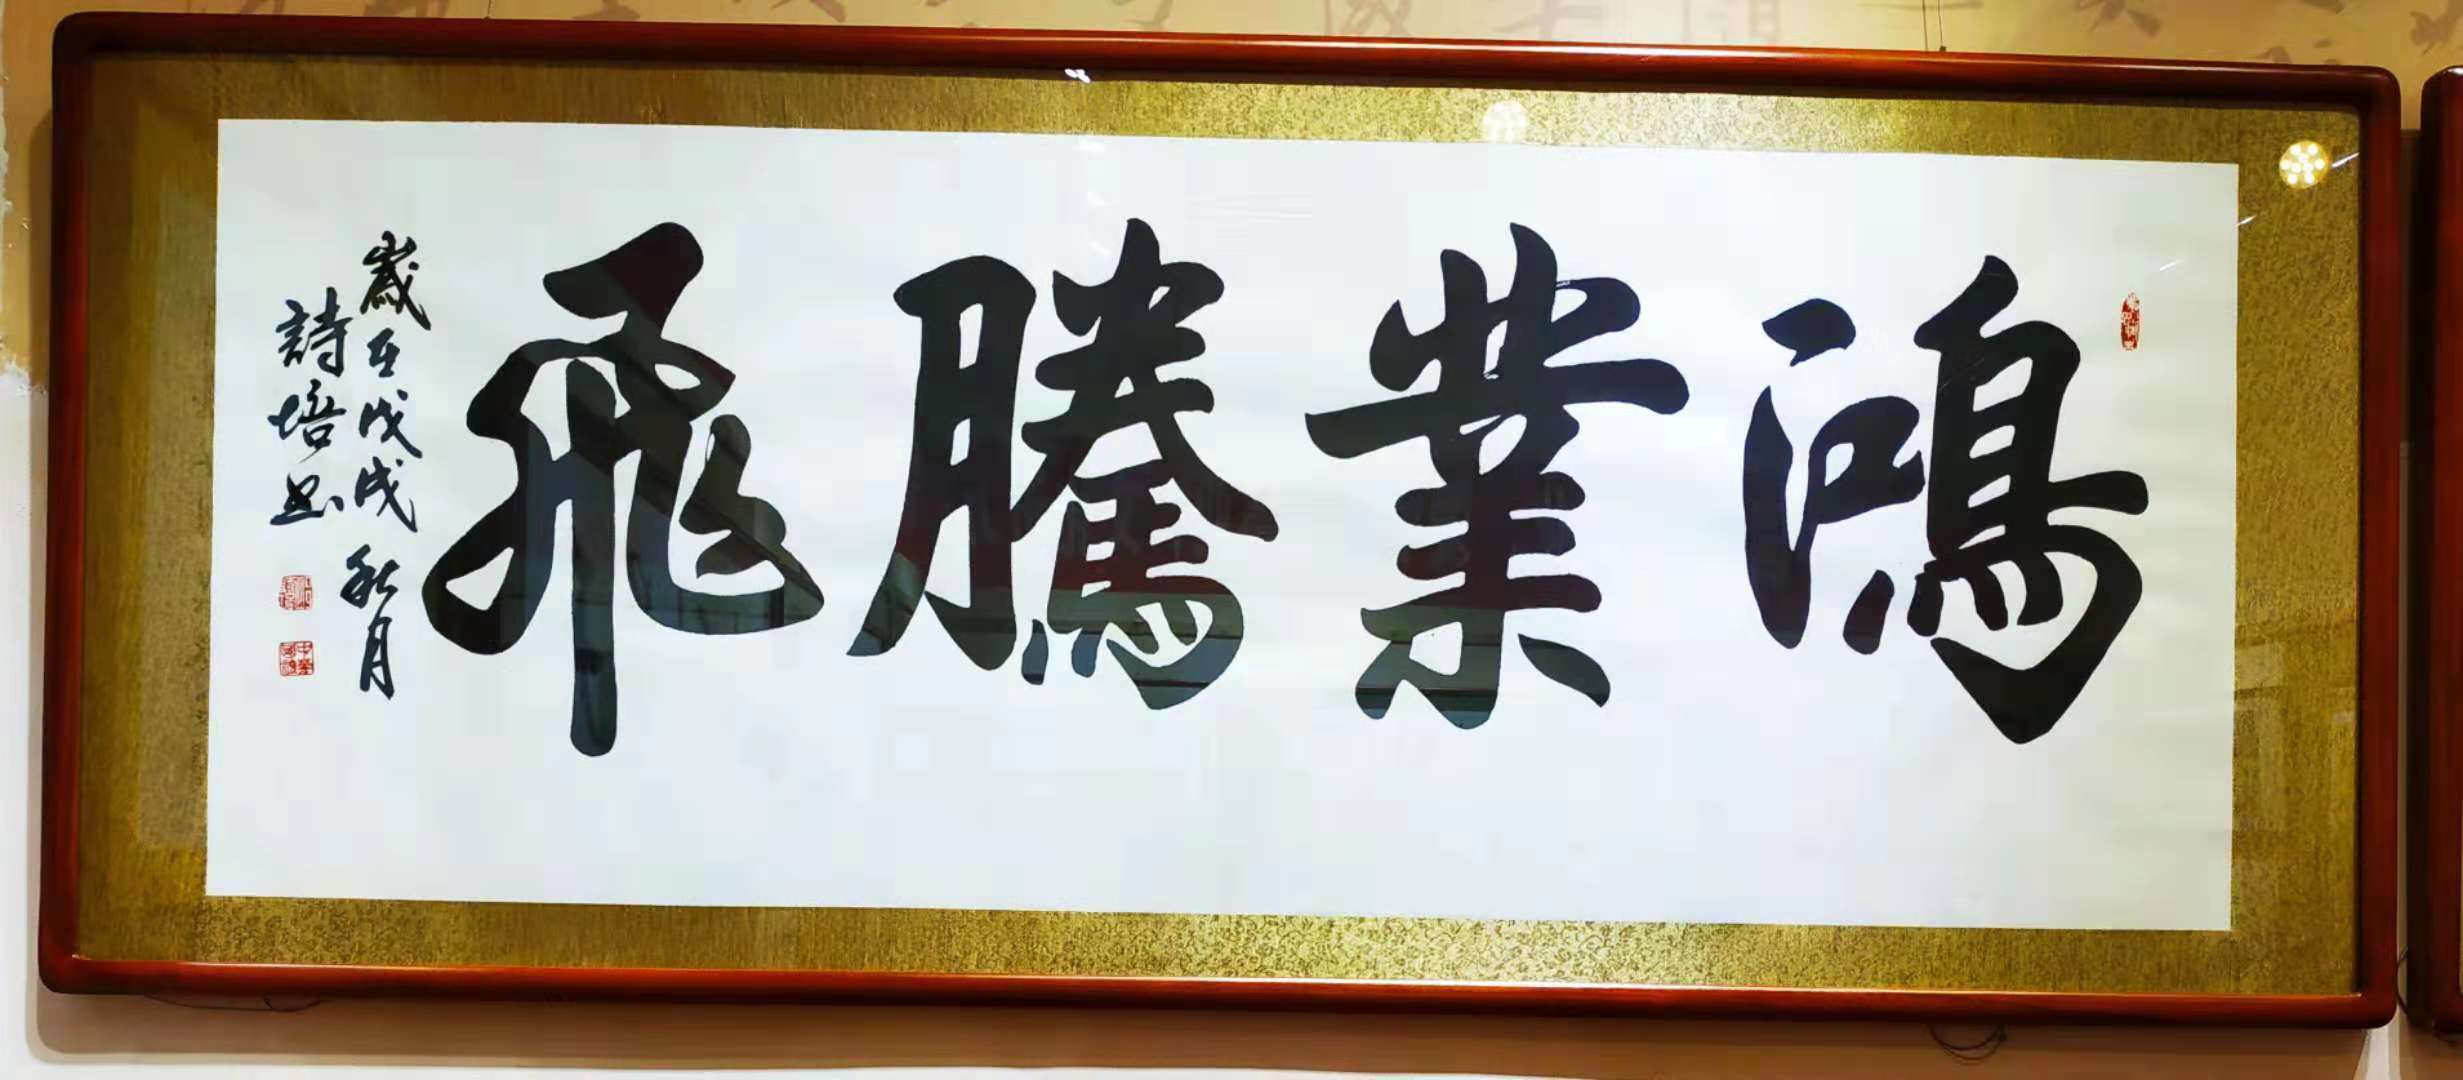 鴻業騰飛
歲在戊戌秋月
詩培书